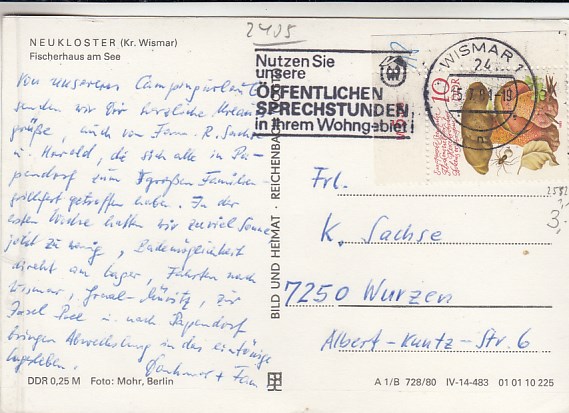 2405
NEUKLOSTER (Kr. Wismar)
Fischerhaus am See
Von unserem Campingurlaub
senden wir Dir herzliche
grüße, auch von Fam. R. Sachse
u. Harald, die sich alle in Pa-
pendorf zum großen Familien-
getroffen haben. In der
ersten Woche hatten wir zuviel Sonne
jetzt zu wenig, Bademöglichkeit
direkt am Lager, Fahrten nach
Wismar, Graal-Müritz, zur
Insel Poel u. nach Papendorf
bringen Abwechslung in das eintönige
Lagerleben. + Fam.
DDR 0,25 M Foto: Mohr, Berlin
BILD UND HEIMAT · REICHENBACH
Nutzen Sie
unsere
ÖFFENTLICHEN
SPRECHSTUNDEN
in Ihrem Wohngebiet!
WISMAR 1
24
10
DDR
Frl.
K. Sachse
7250 Wurzen
Albert-Kuntz-Str. 6
3,-
A 1/B 728/80 IV-14-483 01 01 10 225